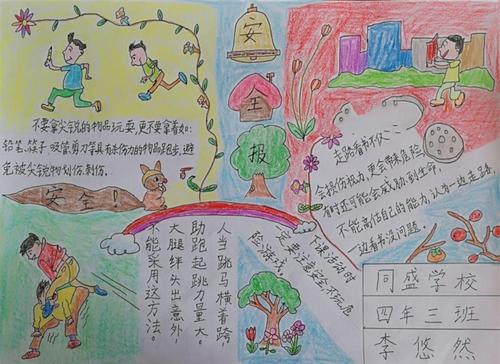 安
全
报
不要拿尖锐的物品玩耍,更不要拿着如:
铅笔、筷子、吸管、剪刀等具有杀伤力的物品跑步,避
免被尖锐物划伤、刺伤。
安全!
走路看书不仅
会损伤视力,更会带来危险,
有时还可能会威胁到生命,
不能高估自己的能力,认为一边走路,
一边看书没问题。
下课活动时
一定要注意安全不玩危
险游戏。
人当跳马横着跨,
助跑起跳力量大。
大腿绊头出意外,
不能采用这方法。
同盛学校
四年三班
李悠然